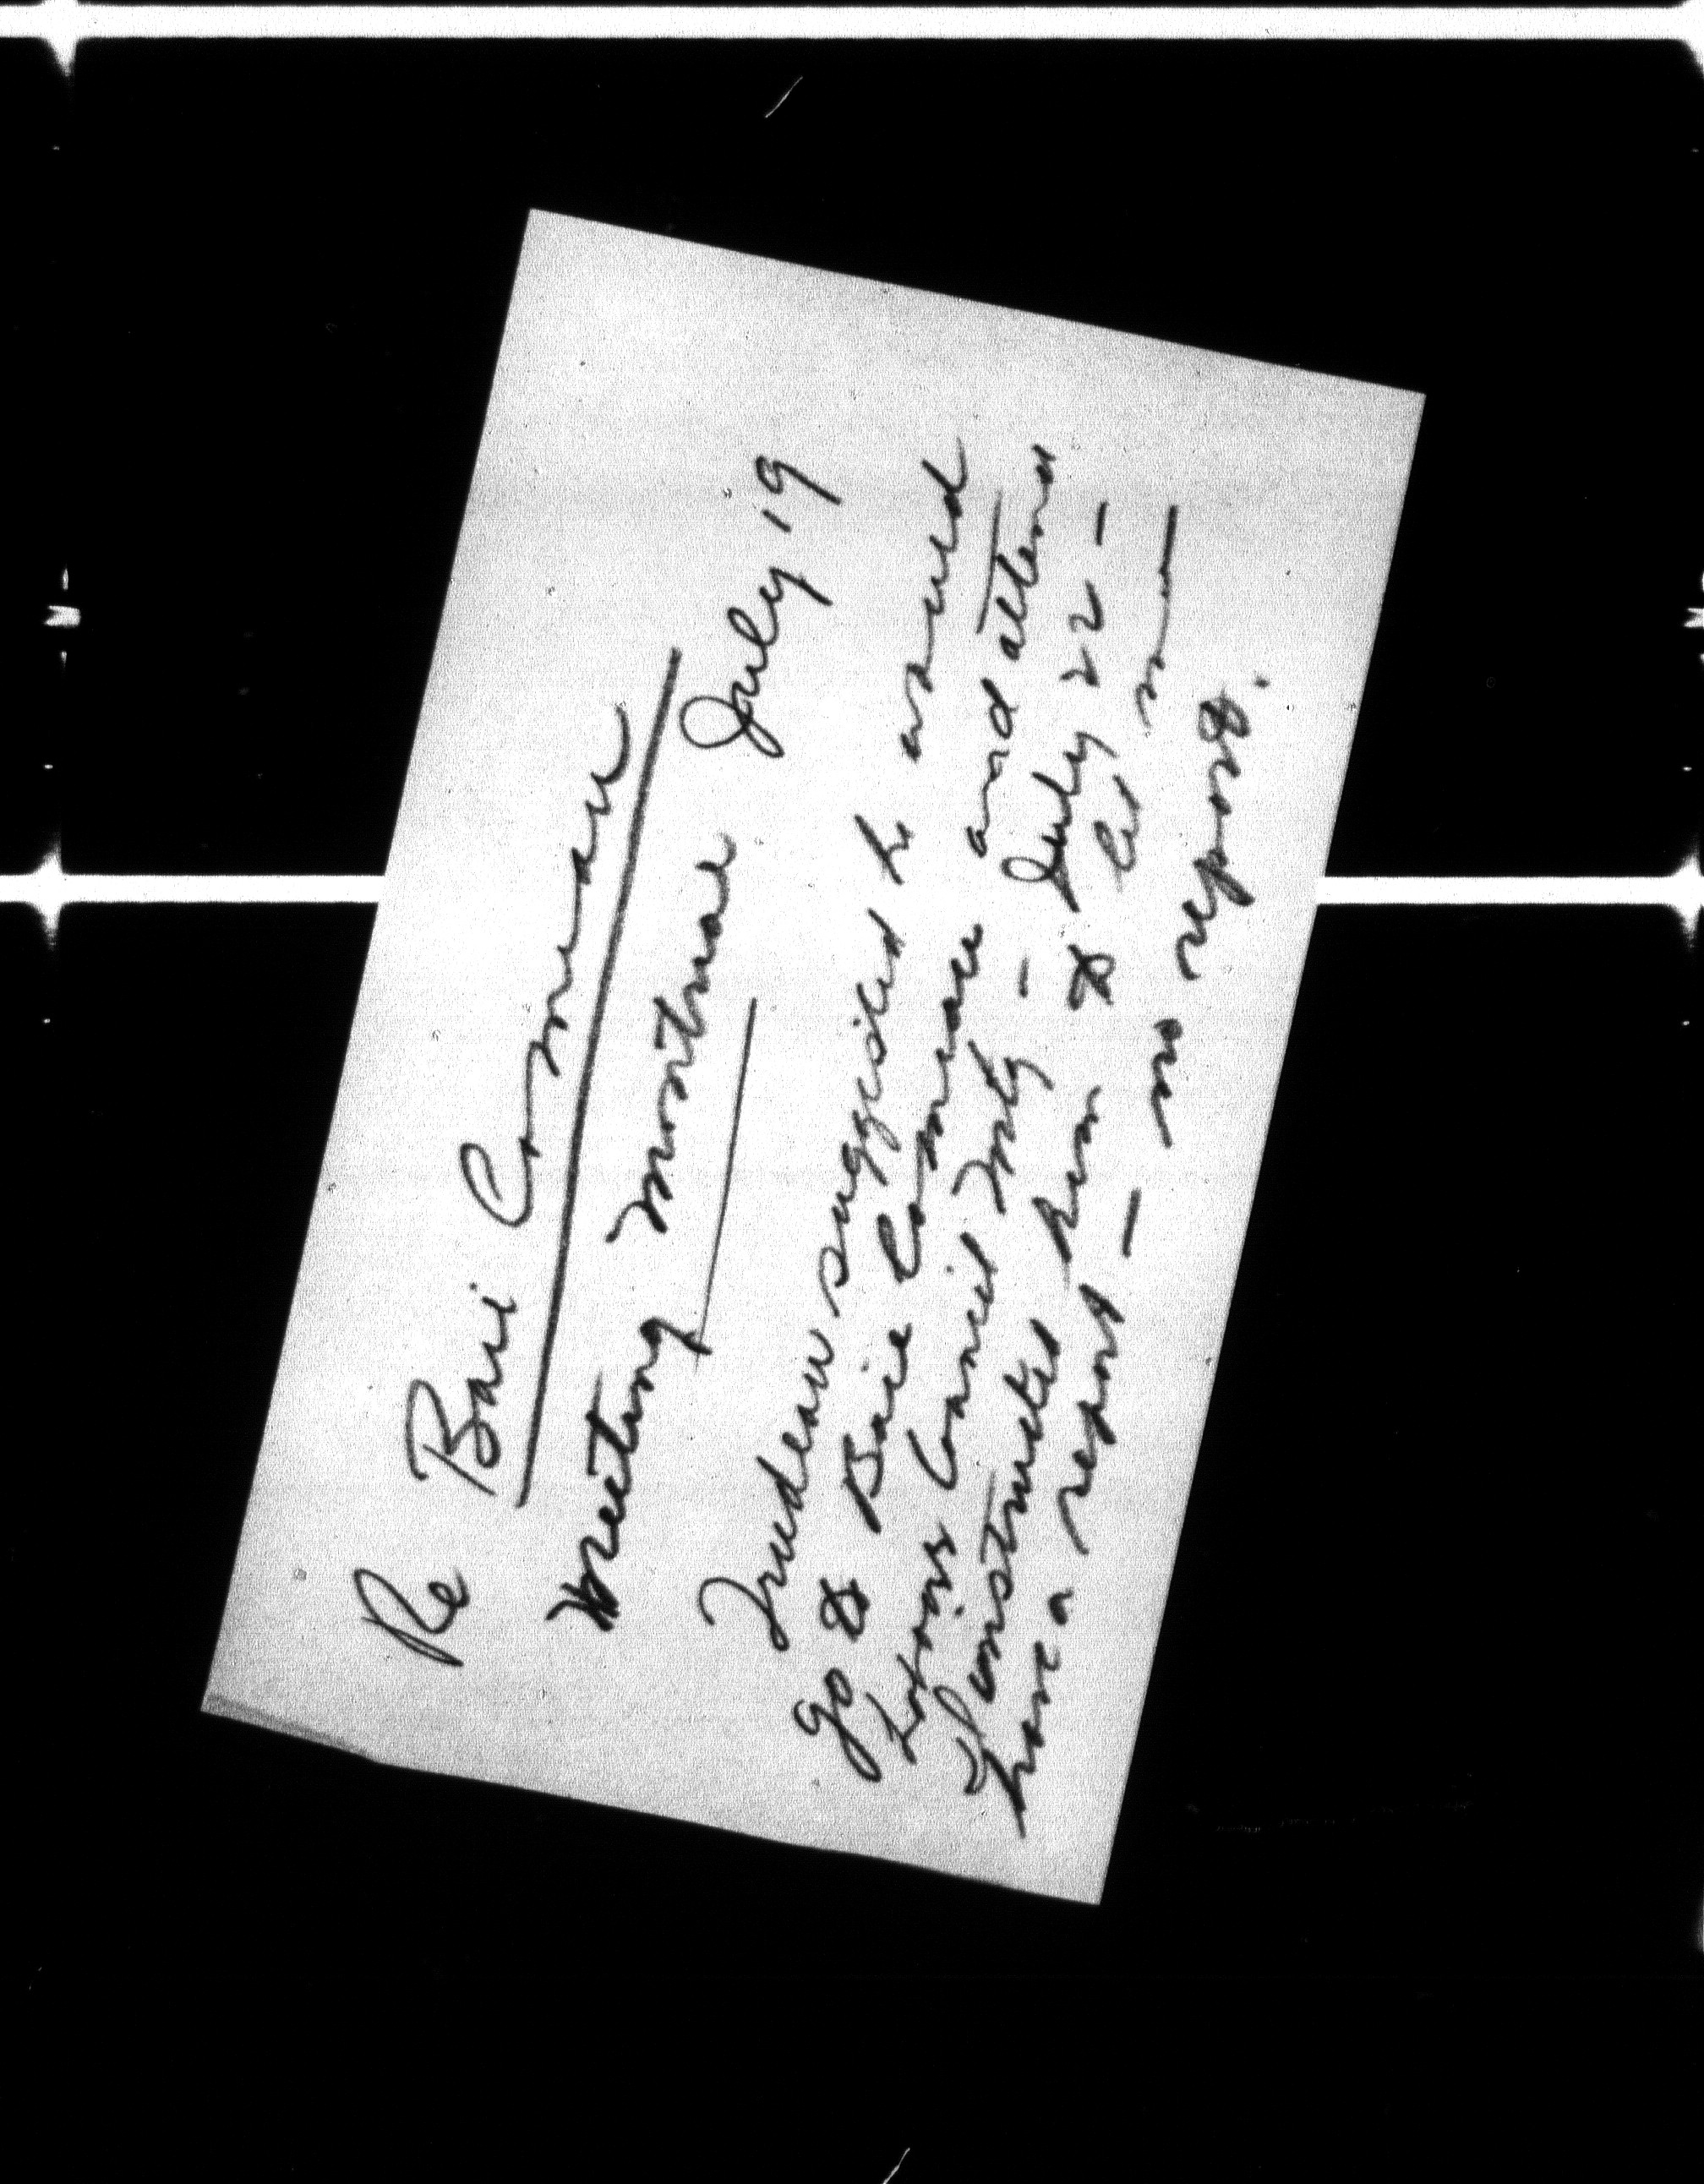 Re Baie Comeau
Meeting Montreal July 19
Trudeau suggested he would
go to Baie Comeau and attend
Labour Council Mtg -
I instructed him to July 22 -
have a report - let me
no report.